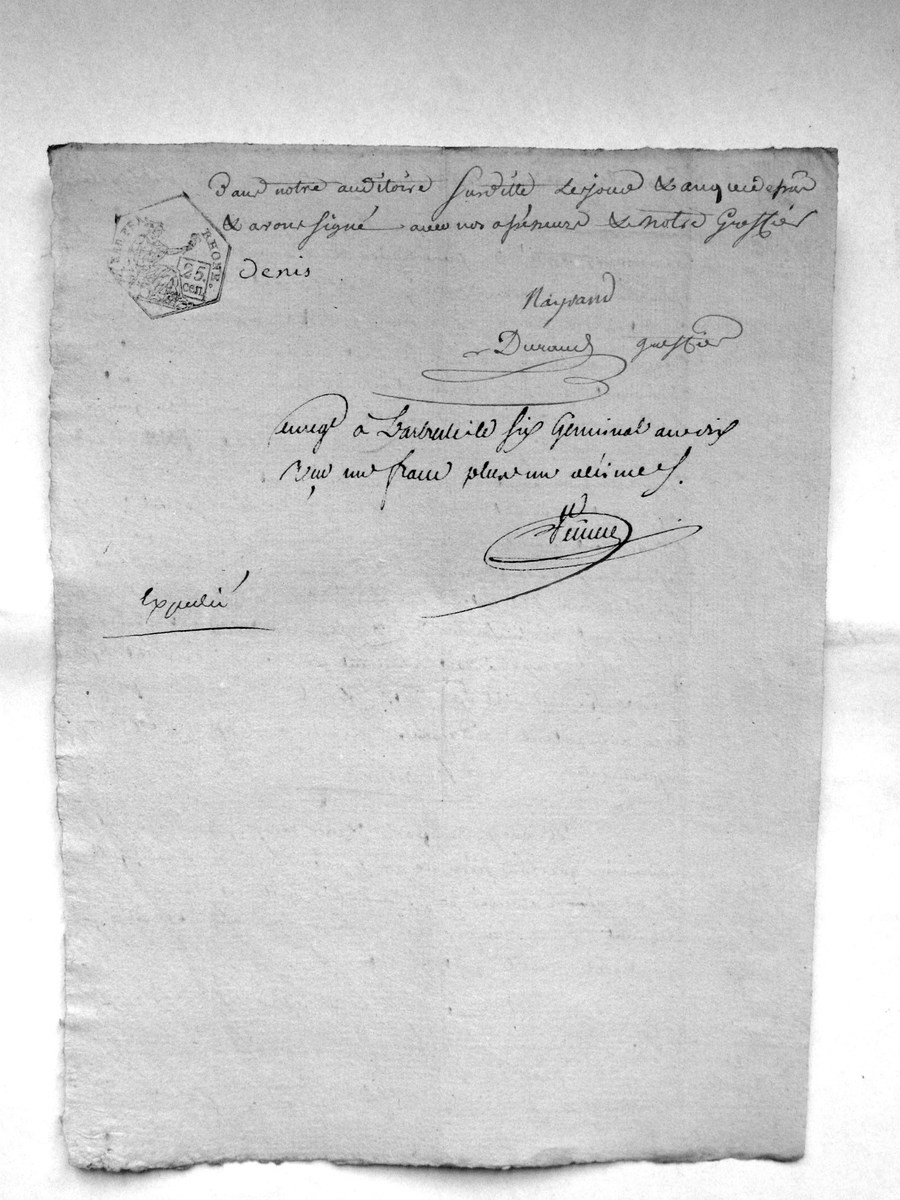 Dans notre auditoire Susditte Le jour & an que dessus
& avons signé avec nos assesseurs & notre Greffier
RHONE.
25.
cen.
Denis
Raynaud
Durand greffier
enregé à Larbresle le six Germinal an dix
Reçu un franc plus un décimes.
Expedié